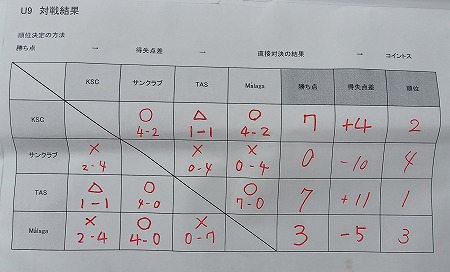 U9 対戦結果
順位決定の方法
勝ち点 → 得失点差 → 直接対決の結果 → コイントス
KSC サンクラブ TAS Málaga 勝ち点 得失点差 順位
KSC ○ △ ○ 7 +4 2
4-2 1-1 4-2
サンクラブ × × × 0 -10 4
2-4 0-4 0-4
TAS △ ○ ○ 7 +11 1
1-1 4-0 7-0
Málaga × ○ × 3 -5 3
2-4 4-0 0-7